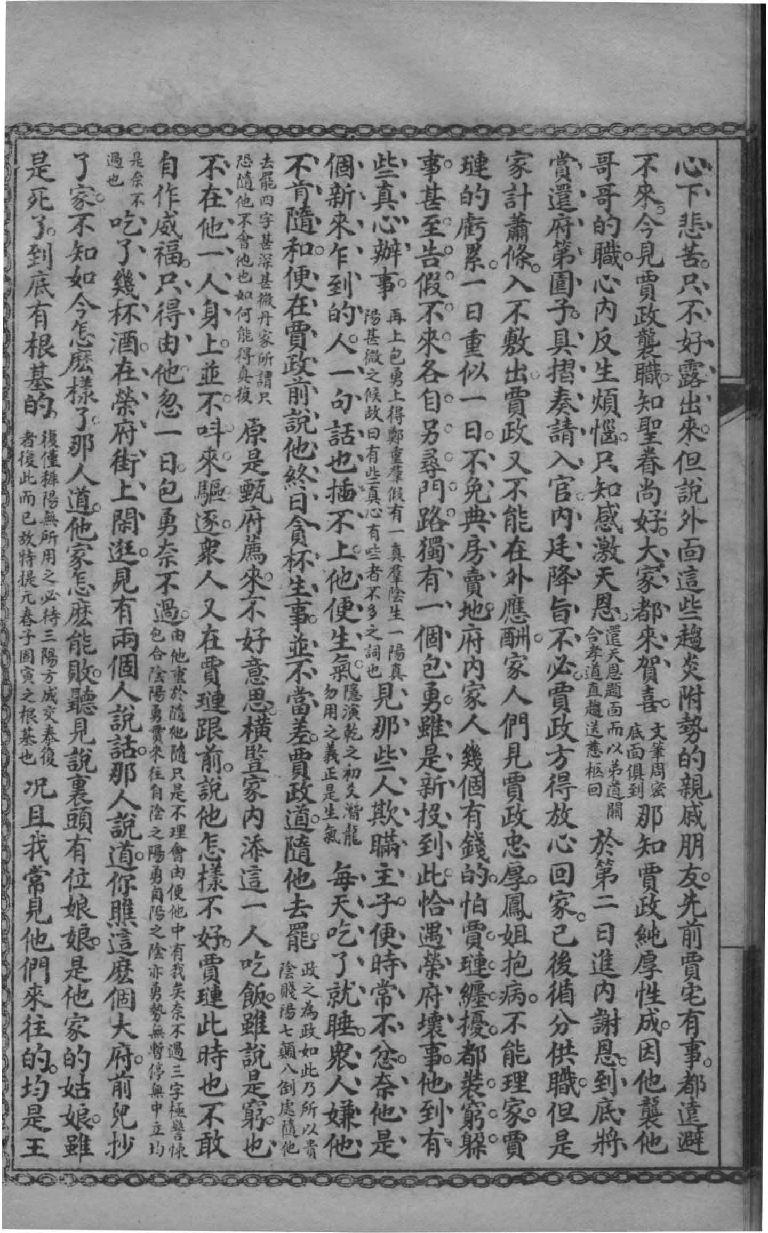 心下悲苦。只不好露出來。但說外面這些趨炎附勢的親戚朋友。先前賈宅有事。都遠避
不來。今見賈政襲職。知聖眷尚好。大家都來賀喜。文筆周密底面俱到那知賈政純厚性成。因他襲他
哥哥的職。心內反生煩惱。只知感激天恩。於第二日進內謝恩。到底將
賞還府第園子。具摺奏請入官。內廷降旨不必。賈政方得放心回家。已後循分供職。但是
家計蕭條。入不敷出。賈政又不能在外應酬。家人們見賈政忠厚。鳳姐抱病。不能理家。賈
璉的虧累。一日重似一日。不免典房賣地。府內家人幾個有錢的。怕賈璉纏擾。都裝窮躲
事。甚至告假不來。各自另尋門路。獨有一個包勇。雖是新投到此。恰遇榮府壞事。他到有
些真心辦事。再上包勇上得鄭重羣假有一真羣陰生一陽真陽甚微之候故曰有些真心有些者不多之詞也見那些人欺瞞主子。便時常不忿。奈他是
個新來乍到的人。一句話也插不上。他便生氣。隱演乾之初爻潛龍勿用之義正是生氣每天吃了就睡。眾人嫌他
不肯隨和。便在賈政前說他終日貪杯生事。並不當差。賈政道。隨他去罷。政之為政如此乃所以貴陰賤陽七顛八倒處隨他
去罷四字甚深甚微丹家所謂只恐隨他不會他也如何能得真復原是甄府薦來。不好意思。橫豎家內添這一人吃飯。雖說是窮。也
不在他一人身上。並不叫來驅逐。眾人又在賈璉跟前。說他怎樣不好。賈璉此時也不敢
自作威福。只得由他。忽一日。包勇奈不過。由他重於隨他隨只是不理會由便他中有我矣奈不過三字極警悚包合陰陽勇賁來往自陰之陽勇自陽之陰亦勇勢無暫停無中立均
是奈不過也吃了幾杯酒。在榮府街上閒逛。見有兩個人說話。那人說道。你瞧這麼個大府。前兒抄
了家。不知如今怎麼樣了。那人道。他家怎麼能敗。聽見說裏頭有位娘娘。是他家的姑娘。雖
是死了。到底有根基的。況且我常見他們來往的。均是王